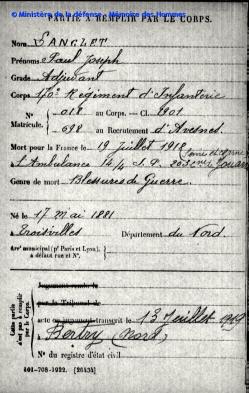 © Ministère de la défense - Mémoire des Hommes
PARTIE À REMPLIR PAR LE CORPS.
Nom SANGLET
Prénoms Paul Joseph
Grade Adjudant
Corps 170e Regiment d'Infanterie
N° 018 au Corps. — Cl. 1901
Matricule. 698 au Recrutement d'Avesnes
Mort pour la France le 19 Juillet 1918
à L'Ambulance 14/4 S.P.
Genre de mort Blessures de Guerre
Né le 17 Mai 1881
à Troisvilles Département du Nord
Arrt municipal (pr Paris et Lyon),
à défaut rue et N°.
Cette partie
n'est pas à remplir
par le Corps.
Jugement rendu le
par le Tribunal de
acte ou jugement transcrit le 13 Juillet 1919
à Bertry (Nord)
N° du registre d'état civil
101-708-1922. [26434]